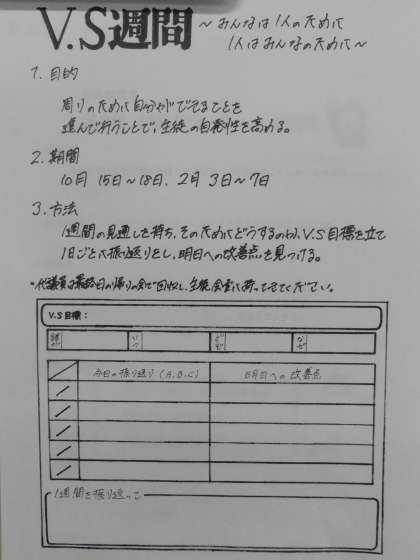 V.S週間 ~みんなは1人のために
1人はみんなのために~
1. 目的
周りのために自分ができることを
進んで行うことで、生徒の自発性を高める。
2. 期間
10月 15日~18日、2月 3日~7日
3. 方法
1週間の見通しを持ち、そのためにどうするのか、V.S目標を立て
1日ごとに振り返りをし、明日への改善点を見つける。
・代議員は最終日の帰りの会で回収し、生徒会室に持ってきてください。
V.S目標:
誰が いつ どこで なぜ
今日の振り返り (A.B.C) 明日への改善点
1週間を振り返って